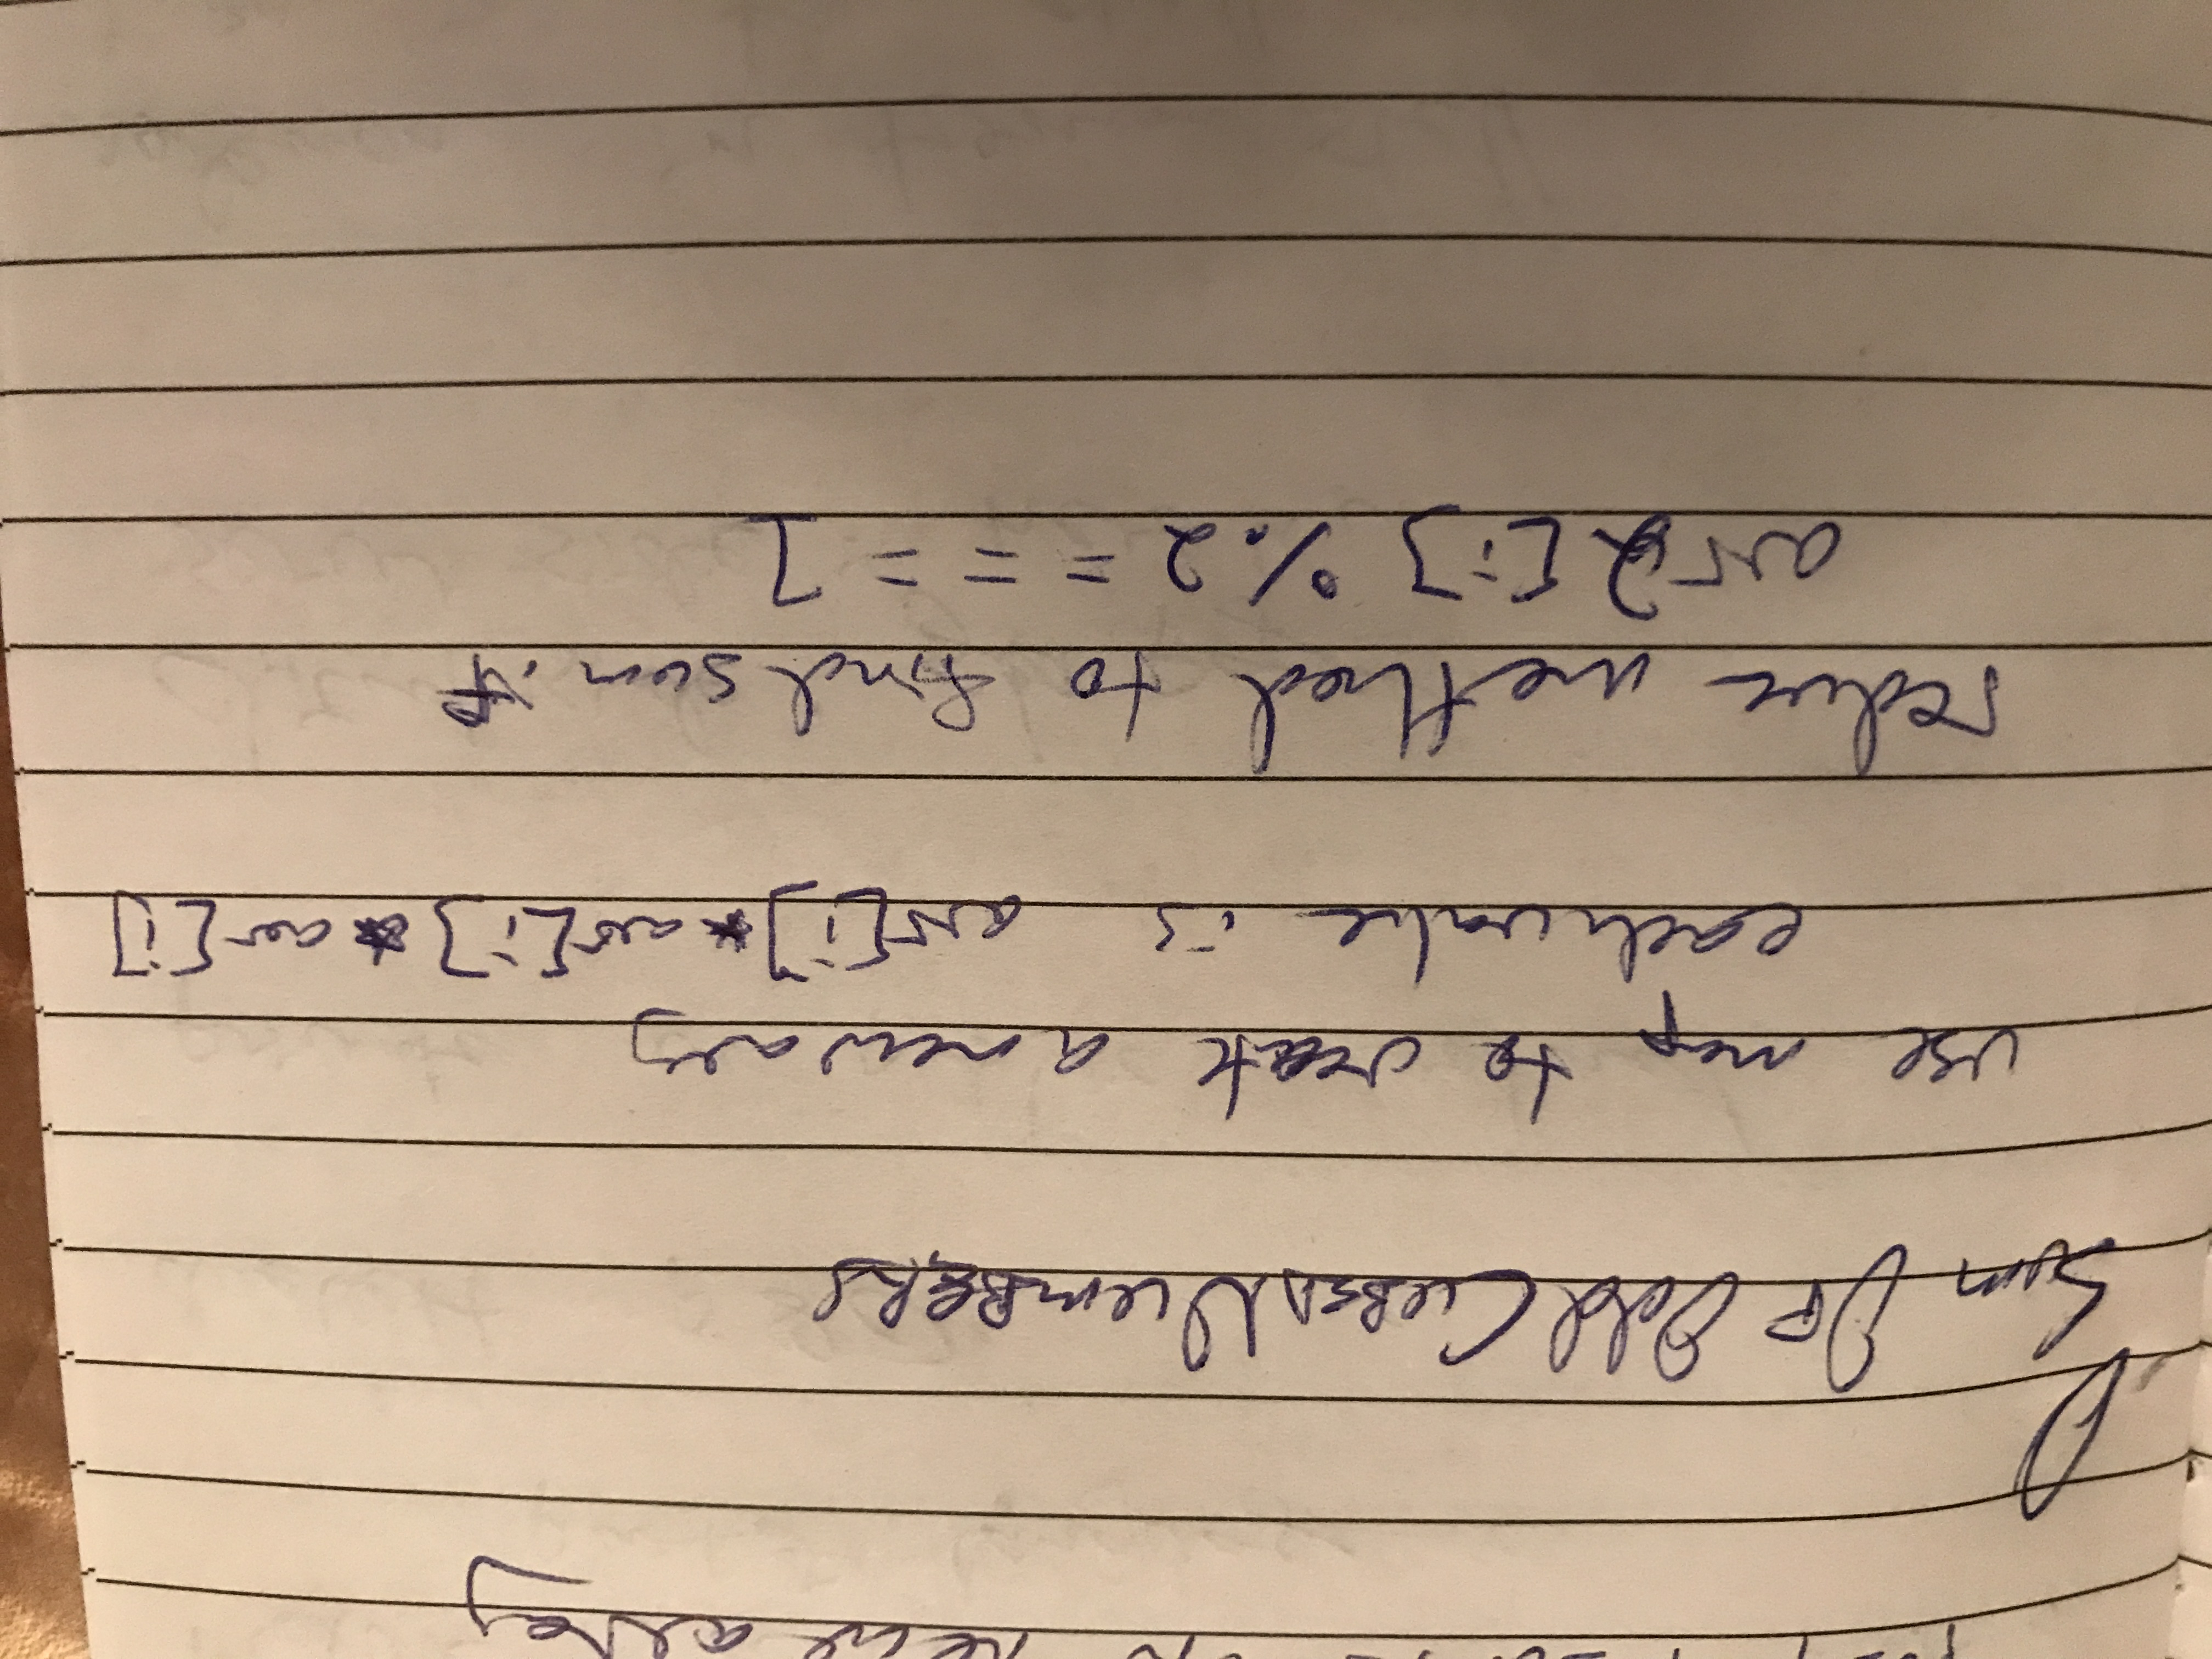 new array
Sum Of Odd Cubed Numbers
use map to create a new arry
each value is arr[i] * arr[i] * arr[i]
reduce method to find sum if
arr2[i] % 2 === 1